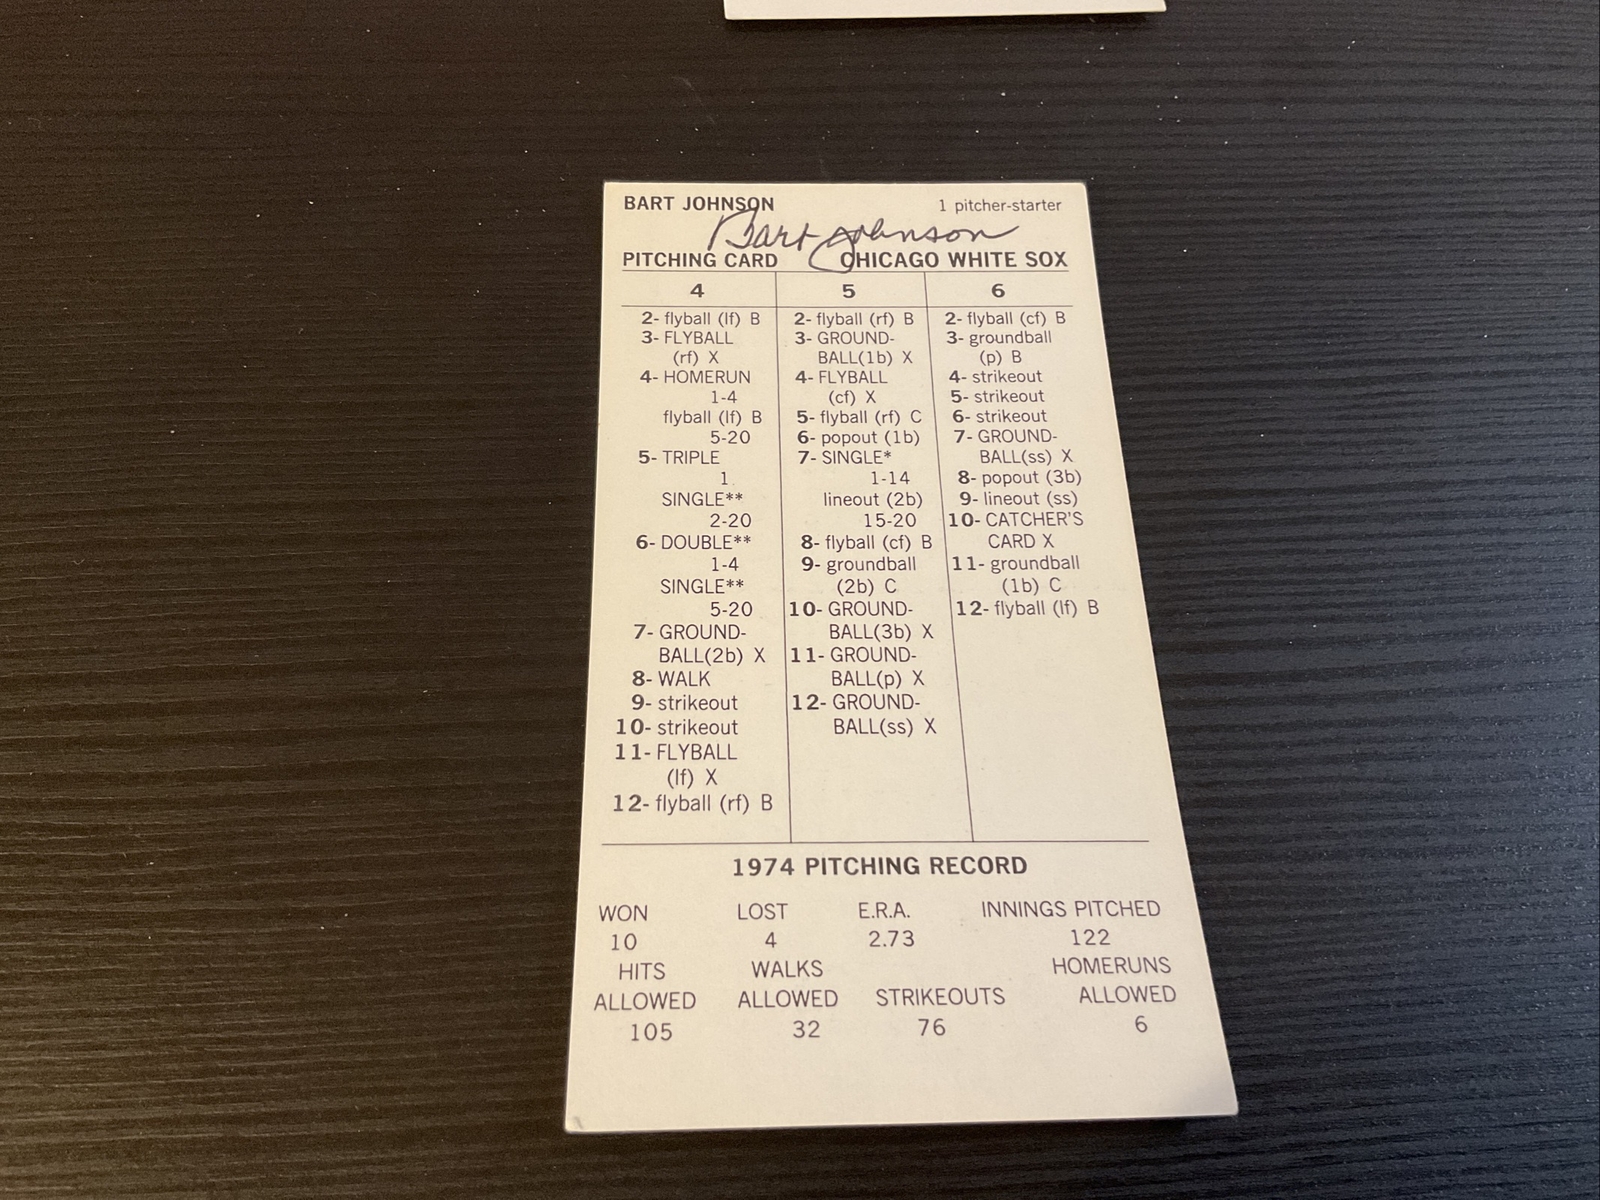 BART JOHNSON 1 pitcher-starter
Bart Johnson
PITCHING CARD CHICAGO WHITE SOX
4 5 6
2- flyball (lf) B
3- FLYBALL
(rf) X
4- HOMERUN
1-4
flyball (lf) B
5-20
5- TRIPLE
1
SINGLE**
2-20
6- DOUBLE**
1-4
SINGLE**
5-20
7- GROUND-
BALL(2b) X
8- WALK
9- strikeout
10- strikeout
11- FLYBALL
(lf) X
12- flyball (rf) B
2- flyball (rf) B
3- GROUND-
BALL(1b) X
4- FLYBALL
(cf) X
5- flyball (rf) C
6- popout (1b)
7- SINGLE*
1-14
lineout (2b)
15-20
8- flyball (cf) B
9- groundball
(2b) C
10- GROUND-
BALL(3b) X
11- GROUND-
BALL(p) X
12- GROUND-
BALL(ss) X
2- flyball (cf) B
3- groundball
(p) B
4- strikeout
5- strikeout
6- strikeout
7- GROUND-
BALL(ss) X
8- popout (3b)
9- lineout (ss)
10- CATCHER'S
CARD X
11- groundball
(1b) C
12- flyball (lf) B
1974 PITCHING RECORD
WON LOST E.R.A. INNINGS PITCHED
10 4 2.73 122
HITS WALKS HOMERUNS
ALLOWED ALLOWED STRIKEOUTS ALLOWED
105 32 76 6